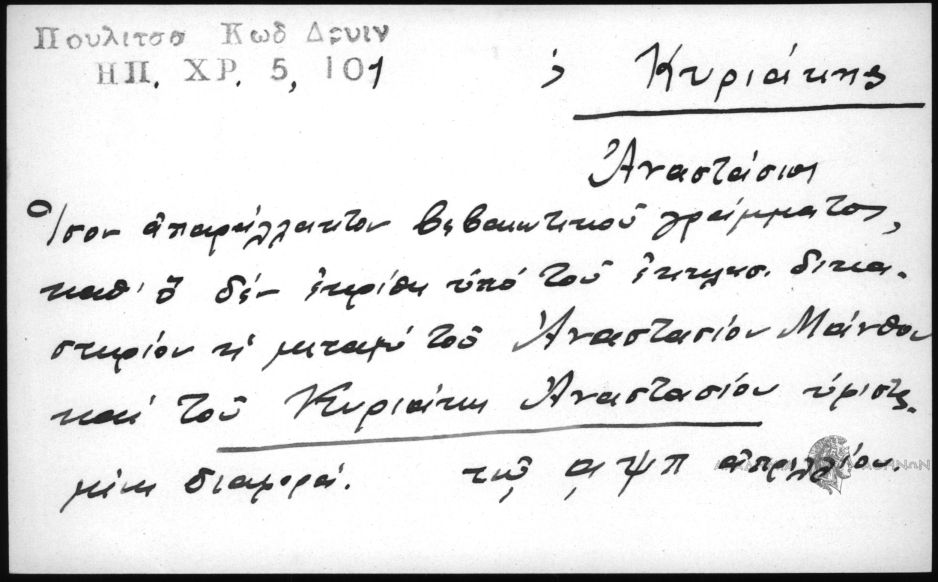 Πουλιτσα Κωδ Δρυιν
ΗΠ. ΧΡ. 5, 101
ὁ Κυριάκης
Ἀναστάσιος
Ἴσον ἀπαράλλακτον βεβαιωτικοῦ γράμματος,
καθ' ὃ δὲν ἐκρίθη ὑπὸ τοῦ ἐκκλησ. δικα-
στηρίου ἡ μεταξὺ τοῦ Ἀναστασίου Μάνθου
καὶ τοῦ Κυριάκη Ἀναστασίου ὑφιστα-
μένη διαφορά. τῷ αψπ ἀπριλλίου